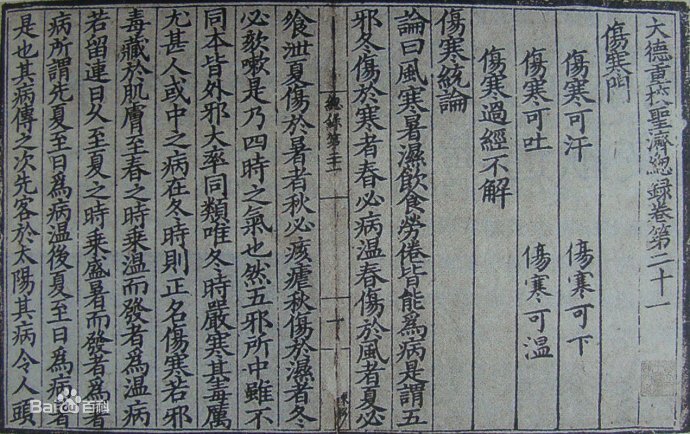 大德重校聖濟總録卷第二十一
傷寒門
傷寒可汗 傷寒可下
傷寒可吐 傷寒可溫
傷寒過經不解
傷寒統論
論曰風寒暑濕飲食勞倦皆能爲病是謂五
邪冬傷於寒者春必病温春傷於風者夏必
總錄卷二十一
飧泄夏傷於暑者秋必痎瘧秋傷於濕者冬
必欬嗽是乃四時之氣也然五邪所中雖不
同本皆外邪大率同類唯冬時嚴寒其毒厲
尤甚人或中之病在冬時則正名傷寒若邪
毒藏於肌膚至春之時乘温而發者爲温病
若留連日久至夏之時乘盛暑而發者爲暑
病所謂先夏至日爲病温後夏至日爲病暑
是也其病傳之次先客於太陽其病令人頭
Bai 百科